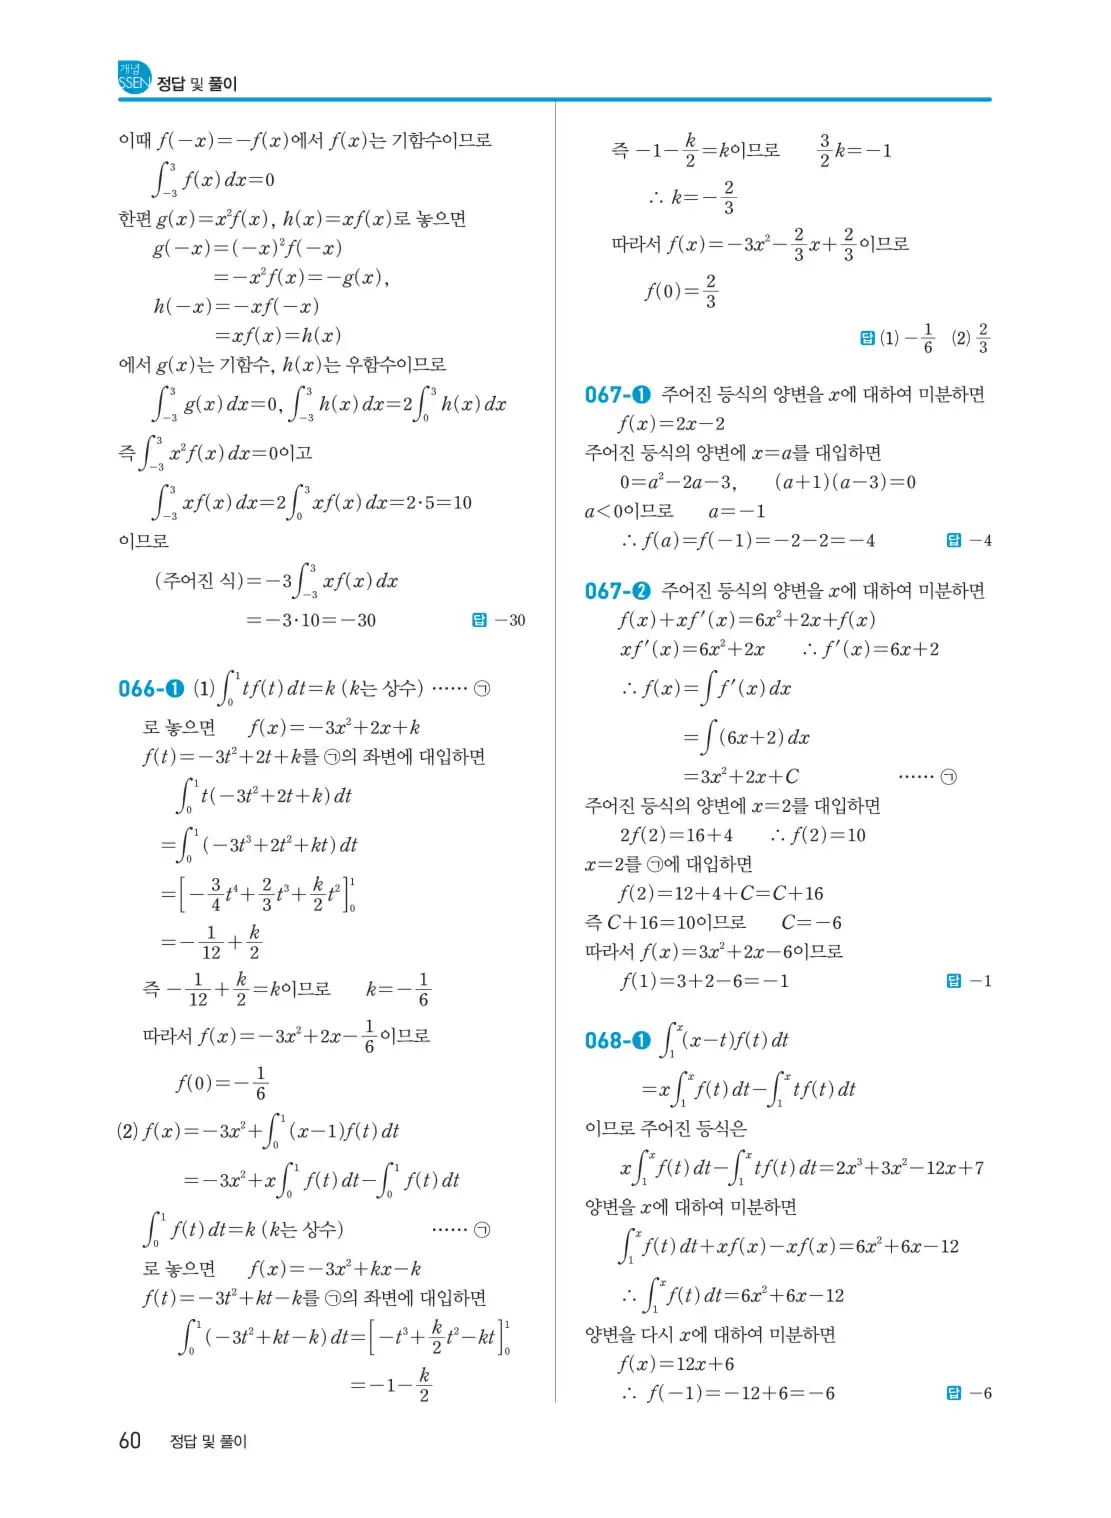 개념
SSEN 정답 및 풀이
이때 f(−x)=−f(x)에서 f(x)는 기함수이므로
∫₋₃³ f(x)dx=0
한편 g(x)=x²f(x), h(x)=xf(x)로 놓으면
g(−x)=(−x)²f(−x)
=−x²f(x)=−g(x),
h(−x)=−xf(−x)
=xf(x)=h(x)
에서 g(x)는 기함수, h(x)는 우함수이므로
∫₋₃³ g(x)dx=0, ∫₋₃³ h(x)dx=2∫₀³ h(x)dx
즉 ∫₋₃³ x²f(x)dx=0이고
∫₋₃³ xf(x)dx=2∫₀³ xf(x)dx=2·5=10
이므로
(주어진 식)=−3∫₋₃³ xf(x)dx
=−3·10=−30 답 −30
066-❶ (1) ∫₀¹ tf(t)dt=k (k는 상수) …… ㉠
로 놓으면 f(x)=−3x²+2x+k
f(t)=−3t²+2t+k를 ㉠의 좌변에 대입하면
∫₀¹ t(−3t²+2t+k)dt
=∫₀¹ (−3t³+2t²+kt)dt
=[−3/4 t⁴+2/3 t³+k/2 t²]₀¹
=−1/12+k/2
즉 −1/12+k/2=k이므로 k=−1/6
따라서 f(x)=−3x²+2x−1/6이므로
f(0)=−1/6
(2) f(x)=−3x²+∫₀¹ (x−1)f(t)dt
=−3x²+x∫₀¹ f(t)dt−∫₀¹ f(t)dt
∫₀¹ f(t)dt=k (k는 상수) …… ㉠
로 놓으면 f(x)=−3x²+kx−k
f(t)=−3t²+kt−k를 ㉠의 좌변에 대입하면
∫₀¹ (−3t²+kt−k)dt=[−t³+k/2 t²−kt]₀¹
=−1−k/2
즉 −1−k/2=k이므로 3/2 k=−1
∴ k=−2/3
따라서 f(x)=−3x²−2/3 x+2/3이므로
f(0)=2/3
답 (1) −1/6 (2) 2/3
067-❶ 주어진 등식의 양변을 x에 대하여 미분하면
f(x)=2x−2
주어진 등식의 양변에 x=a를 대입하면
0=a²−2a−3, (a+1)(a−3)=0
a<0이므로 a=−1
∴ f(a)=f(−1)=−2−2=−4 답 −4
067-❷ 주어진 등식의 양변을 x에 대하여 미분하면
f(x)+xf′(x)=6x²+2x+f(x)
xf′(x)=6x²+2x ∴ f′(x)=6x+2
∴ f(x)=∫f′(x)dx
=∫(6x+2)dx
=3x²+2x+C …… ㉠
주어진 등식의 양변에 x=2를 대입하면
2f(2)=16+4 ∴ f(2)=10
x=2를 ㉠에 대입하면
f(2)=12+4+C=C+16
즉 C+16=10이므로 C=−6
따라서 f(x)=3x²+2x−6이므로
f(1)=3+2−6=−1 답 −1
068-❶ ∫₁ˣ (x−t)f(t)dt
=x∫₁ˣ f(t)dt−∫₁ˣ tf(t)dt
이므로 주어진 등식은
x∫₁ˣ f(t)dt−∫₁ˣ tf(t)dt=2x³+3x²−12x+7
양변을 x에 대하여 미분하면
∫₁ˣ f(t)dt+xf(x)−xf(x)=6x²+6x−12
∴ ∫₁ˣ f(t)dt=6x²+6x−12
양변을 다시 x에 대하여 미분하면
f(x)=12x+6
∴ f(−1)=−12+6=−6 답 −6
60 정답 및 풀이